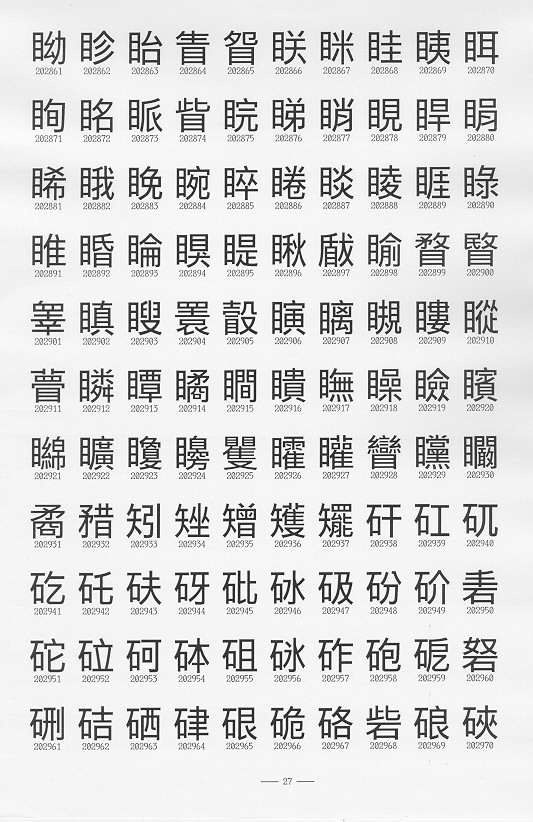 眑 眕 眙 眚 眢 眹 眯 眭 眱 眲
202861 202862 202863 202864 202865 202866 202867 202868 202869 202870
眴 眳 眽 眥 睆 睇 睄 睍 睅 睊
202871 202872 202873 202874 202875 202876 202877 202878 202879 202880
睎 睋 睌 睕 睟 睠 睒 睖 睚 睩
202881 202882 202883 202884 202885 202886 202887 202888 202889 202890
睢 睧 睔 瞁 睼 瞅 瞂 睮 瞀 瞖
202891 202892 202893 202894 202895 202896 202897 202898 202899 202900
睪 瞋 瞍 瞏 瞉 瞚 瞝 瞡 瞜 瞛
202901 202902 202903 202904 202905 202906 202907 202908 202909 202910
瞢 瞵 瞫 瞲 瞷 瞶 瞴 矂 瞼 矉
202911 202912 202913 202914 202915 202916 202917 202918 202919 202920
矊 矌 矎 矏 矍 矐 矔 矕 矘 矙
202921 202922 202923 202924 202925 202926 202927 202928 202929 202930
矞 矠 矧 矬 矰 矱 矲 矸 矼 矹
202931 202932 202933 202934 202935 202936 202937 202938 202939 202940
矻 矺 砆 砑 砒 砅 砐 砏 砎 砉
202941 202942 202943 202944 202945 202946 202947 202948 202949 202950
砣 砬 砢 砵 砠 砯 砟 砲 砨 砮
202951 202952 202953 202954 202955 202956 202957 202958 202959 202960
硎 硈 硒 硉 硍 硊 硌 砦 硠 硤
202961 202962 202963 202964 202965 202966 202967 202968 202969 202970
— 27 —